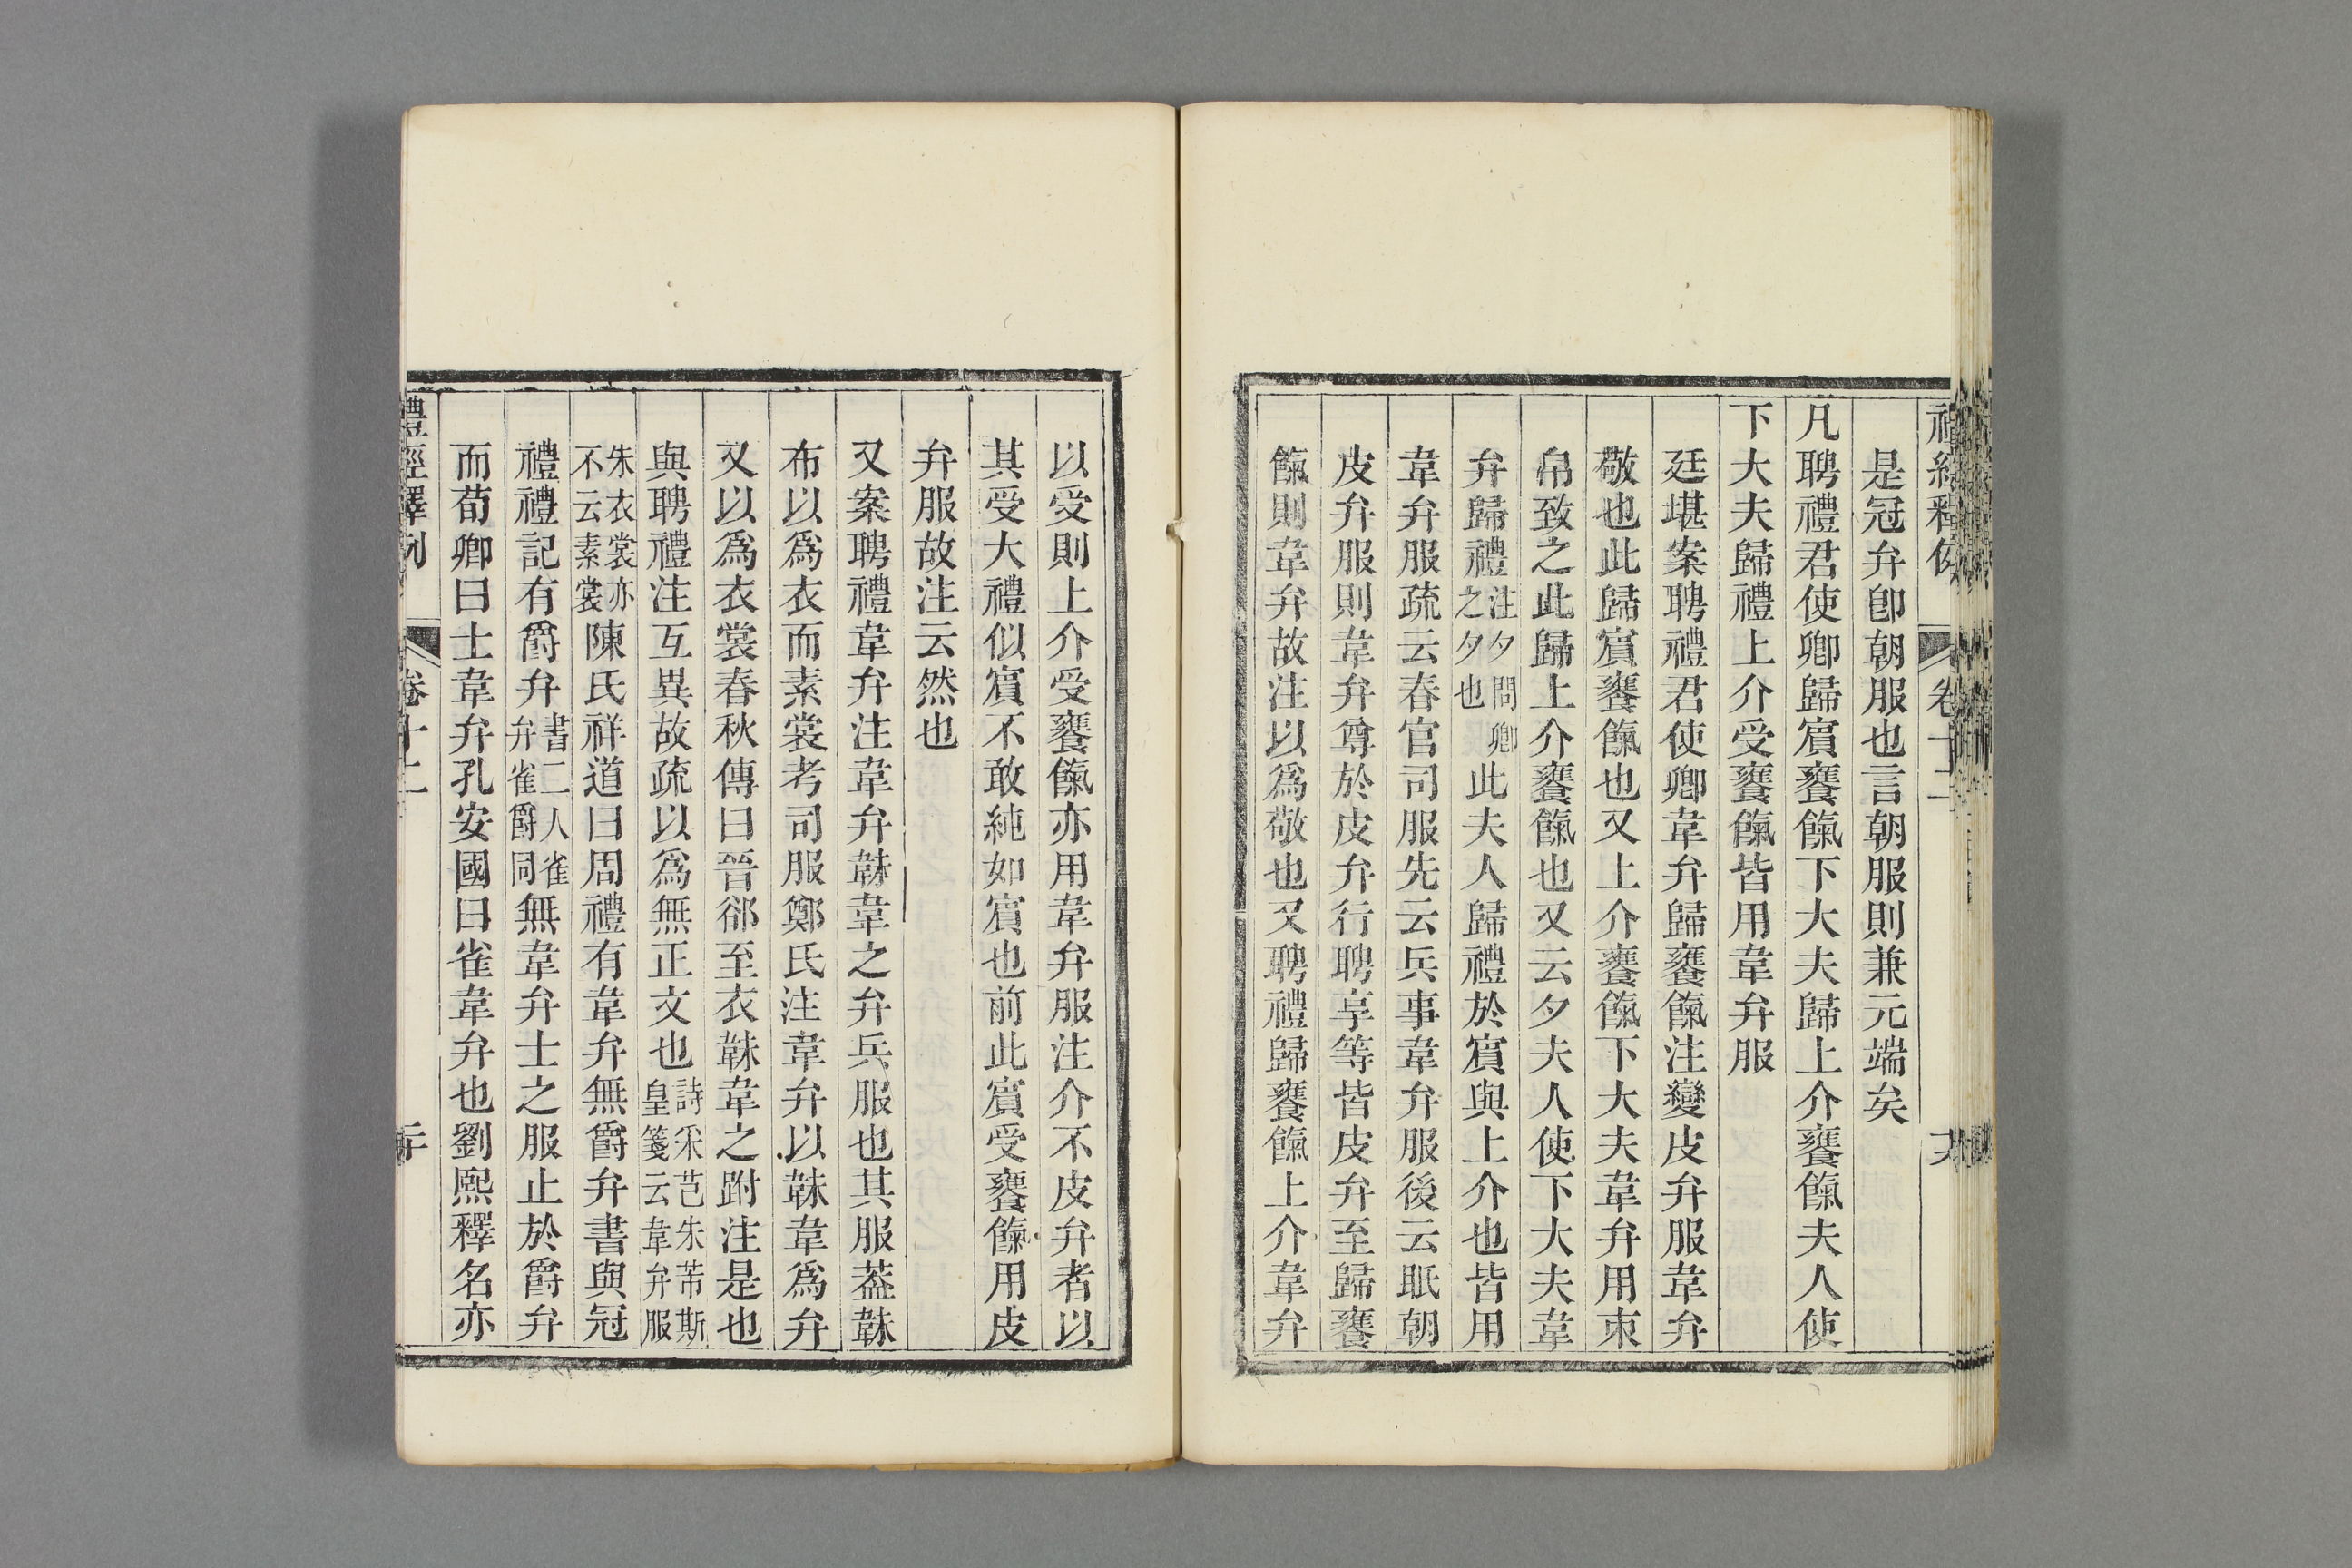 禮經釋例 卷十二
是冠弁卽朝服也言朝服則兼元端矣
凡聘禮君使卿歸賔饔餼下大夫歸上介饔餼夫人使
下大夫歸禮上介受饔餼皆用韋弁服
廷堪案聘禮君使卿韋弁歸饔餼注變皮弁服韋弁
敬也此歸賔饔餼也又上介饔餼下大夫韋弁用束
帛致之此歸上介饔餼也又云夕夫人使下大夫韋
弁歸禮注夕問卿之夕也此夫人歸禮於賔與上介也皆用
韋弁服疏云春官司服先云兵事韋弁服後云眂朝
皮弁服則韋弁尊於皮弁行聘享等皆皮弁至歸饔
餼則韋弁故注以爲敬也又聘禮歸饔餼上介韋弁
以受則上介受饔餼亦用韋弁服注介不皮弁者以
其受大禮似賔不敢純如賔也前此賔受饔餼用皮
弁服故注云然也
又案聘禮韋弁注韋弁韎韋之弁兵服也其服葢韎
布以爲衣而素裳考司服鄭氏注韋弁以韎韋爲弁
又以爲衣裳春秋傳曰晉郤至衣韎韋之跗注是也
與聘禮注互異故疏以爲無正文也詩采芑朱芾斯皇箋云韋弁服
朱衣裳亦不云素裳陳氏祥道曰周禮有韋弁無爵弁書與冠
禮禮記有爵弁書二人雀弁雀爵同無韋弁士之服止於爵弁
而荀卿曰士韋弁孔安國曰雀韋弁也劉熙釋名亦
禮經釋例 卷十二